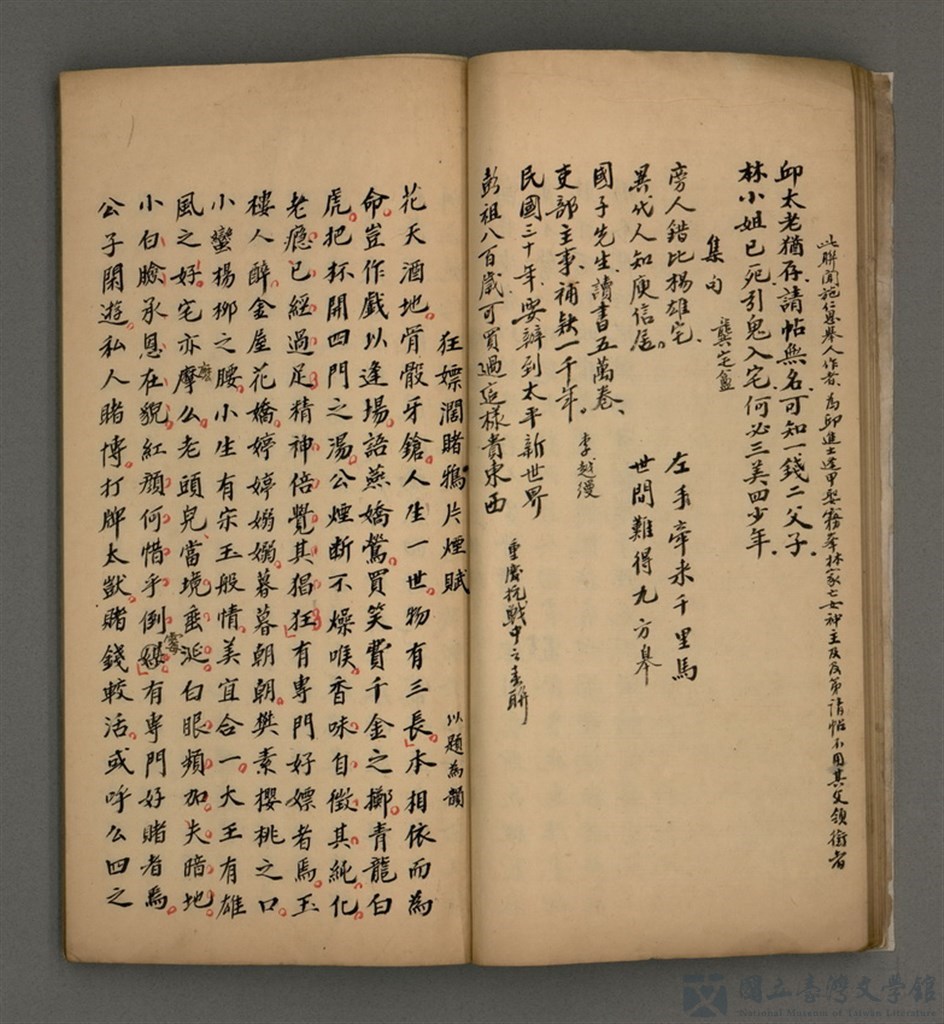 此聯聞施信恩舉人作者為邱進士逢甲娶霧峯林家亡女神主及及第請帖不用其父領銜者
邱太老猶存請帖無名可知一錢二父子
林小姐已死引鬼入宅何必三美四少年
集句 龔定盦
旁人錯比楊雄宅
異代人知庾信居
左手牽來千里馬
世間難得九方皋
國子先生讀書五萬卷
吏部主事補缺一千年 李越縵
民國三十年要辦到太平新世界
彭祖八百歲可買過這樣貴東西
重慶抗戰中之春聯
狂嫖濶賭鴉片煙賦 以題為韻
花天酒地骨骰牙鎗人生一世物有三長本相依而為
命豈作戲以逢場語燕嬌鶯買笑費千金之擲青龍白
虎把杯開四門之湯公煙断不燥喉香味自徵其純化
老癮已經過足精神倍覺其猖狂有專門好嫖者焉玉
樓人醉金屋花嬌婷婷嫋嫋暮暮朝朝樊素櫻桃之口
小蠻楊柳之腰小生有宋玉般情美宜合一大王有雄
風之好宅亦摩么老頭兒當境垂涎白眼頻加夫暗地
小白臉承恩在貌紅顏何惜乎倒有專門好賭者焉
公子閑遊私人賭博打牌太獃賭錢較活或呼么四之